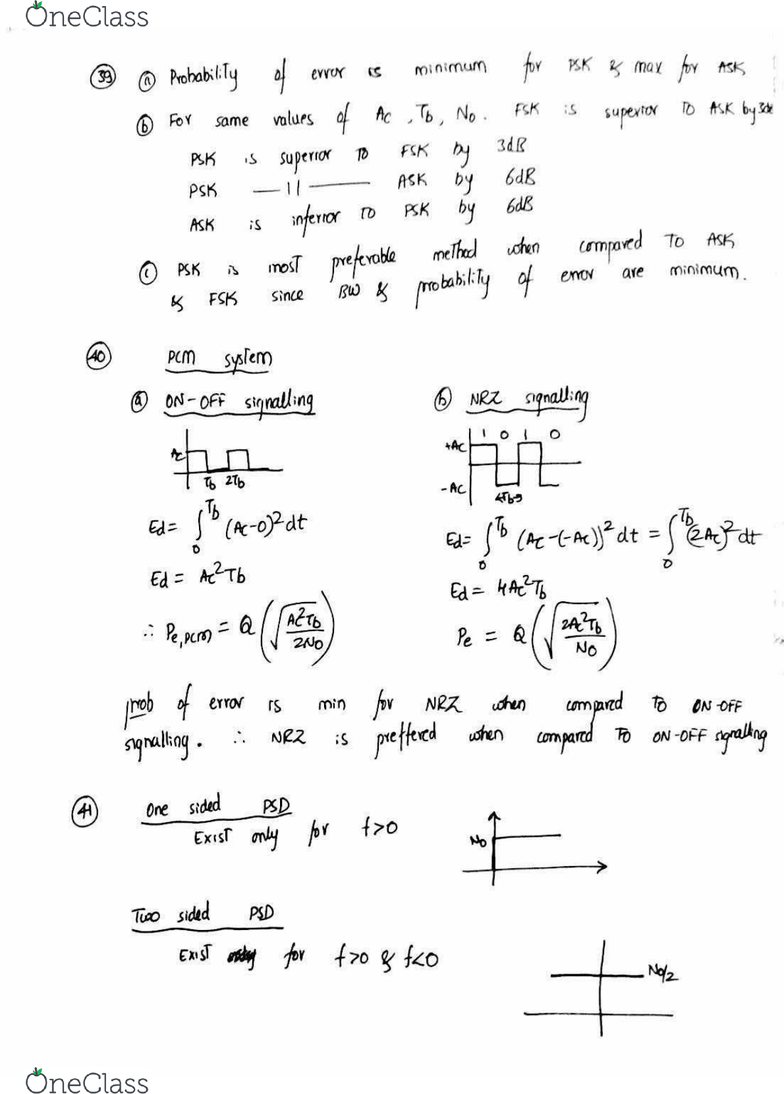 OneClass
39 a Probability of error is minimum for PSK & max for ASK
b For same values of Ac, Tb, No. FSK is superior to ASK by 3dB
PSK is superior to FSK by 3dB
PSK —11— ASK by 6dB
ASK is inferior to PSK by 6dB
c PSK is most preferable method when compared to ASK
& FSK since BW & probability of error are minimum.
40 PCM system
a ON-OFF signalling
Ac
Tb 2Tb
Ed = ∫₀^Tb (Ac-0)² dt
Ed = Ac²Tb
∴ Pe,PCM = Q(√(Ac²Tb/2No))
b NRZ signalling
+Ac 1 0 1 0
-Ac
Ed = ∫₀^Tb (Ac-(-Ac))² dt = ∫₀^Tb (2Ac)² dt
Ed = 4Ac²Tb
Pe = Q(√(2Ac²Tb/No))
prob of error is min for NRZ when compared to ON-OFF
signalling. ∴ NRZ is preffered when compared to ON-OFF signalling
41 One sided PSD
Exist only for f>0
No
Two sided PSD
Exist for f>0 & f<0
No/2
OneClass